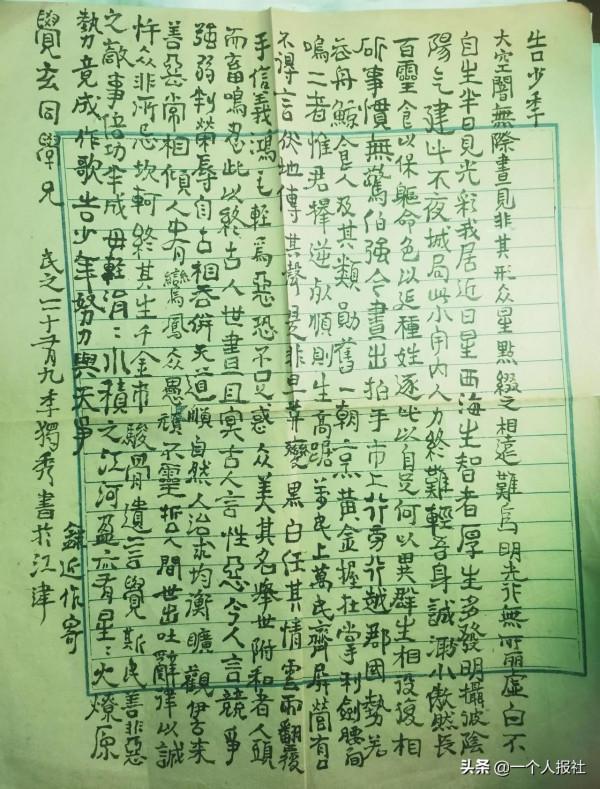 告少年
大空闇無際晝見非其形众星點綴之相遠難爲明光行無所麗虛白不
自生半日見光彩我居近日星西海生智者厚生多發明攝彼陰
陽氣建此不夜城局此小宇內人力終難輕吾身誠渺小傲然長
百靈食以保軀命色以延種姓逐此以自足何以異群生相役復相
斫事慣無驚伯強今晝出拍手市上行旁行越郡國勢若
吞舟鯨食人及其類勛舊一朝烹黃金握在掌利劍腰間
鳴二者惟君擇逆死順則生高踞萬民上萬民齊屏營有口
不得言伏地傳其聲是非旦莫變黑白任其情雲雨翻覆
手信義鴻毛輕爲惡恐不足惑众美其名舉世附和者人頭
而畜鳴忍此以終古人世晝且冥古人言性惡今人言競爭
強弱判榮辱自古相吞併天道順自然人治求均衡曠觀伊古來
善惡常相傾人中有鸞鳳众愚頑不靈哲人間世出吐辭律以誠
忤众非所忌坎軻終其生千金市駿骨遺言覺斯民善非惡
之敵事倍功半成毋輕涓:水積之江河盈亦有星:火燎原
勢竟成作歌告少年努力與天爭
錄近作寄
覺玄同學兄
民之二十有九年獨秀書於江津
头条 @一个人报社